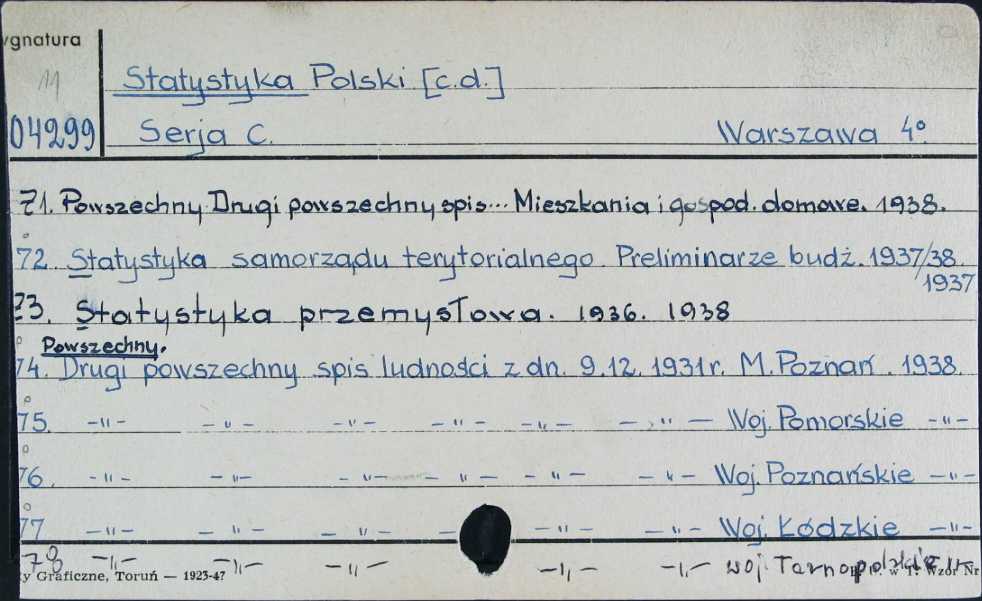 ygnatura
11
Statystyka Polski [c.d.]
04299 Serja C. Warszawa 4°
71. Powszechny Drugi powszechny spis... Mieszkania i gospod. domowe. 1938.
72. Statystyka samorządu terytorialnego. Preliminarze budż. 1937/38.
1937
73. Statystyka przemysłowa. 1936. 1938
Powszechny.
74. Drugi powszechny spis ludności z dn. 9.12.1931r. M. Poznań. 1938.
75. -"- -"- -"- -"- -"- -"- Woj. Pomorskie -"-
76. -"- -"- -"- -"- -"- -"- Woj. Poznańskie -"-
77 -"- -"- -"- - -"- -"- Woj. Łódzkie -"-
78 -"- -"- -"- -"- -"- woj. Tarnopolskie -"-
y Graficzne, Toruń — 1923-47 w T. Wzór Nr